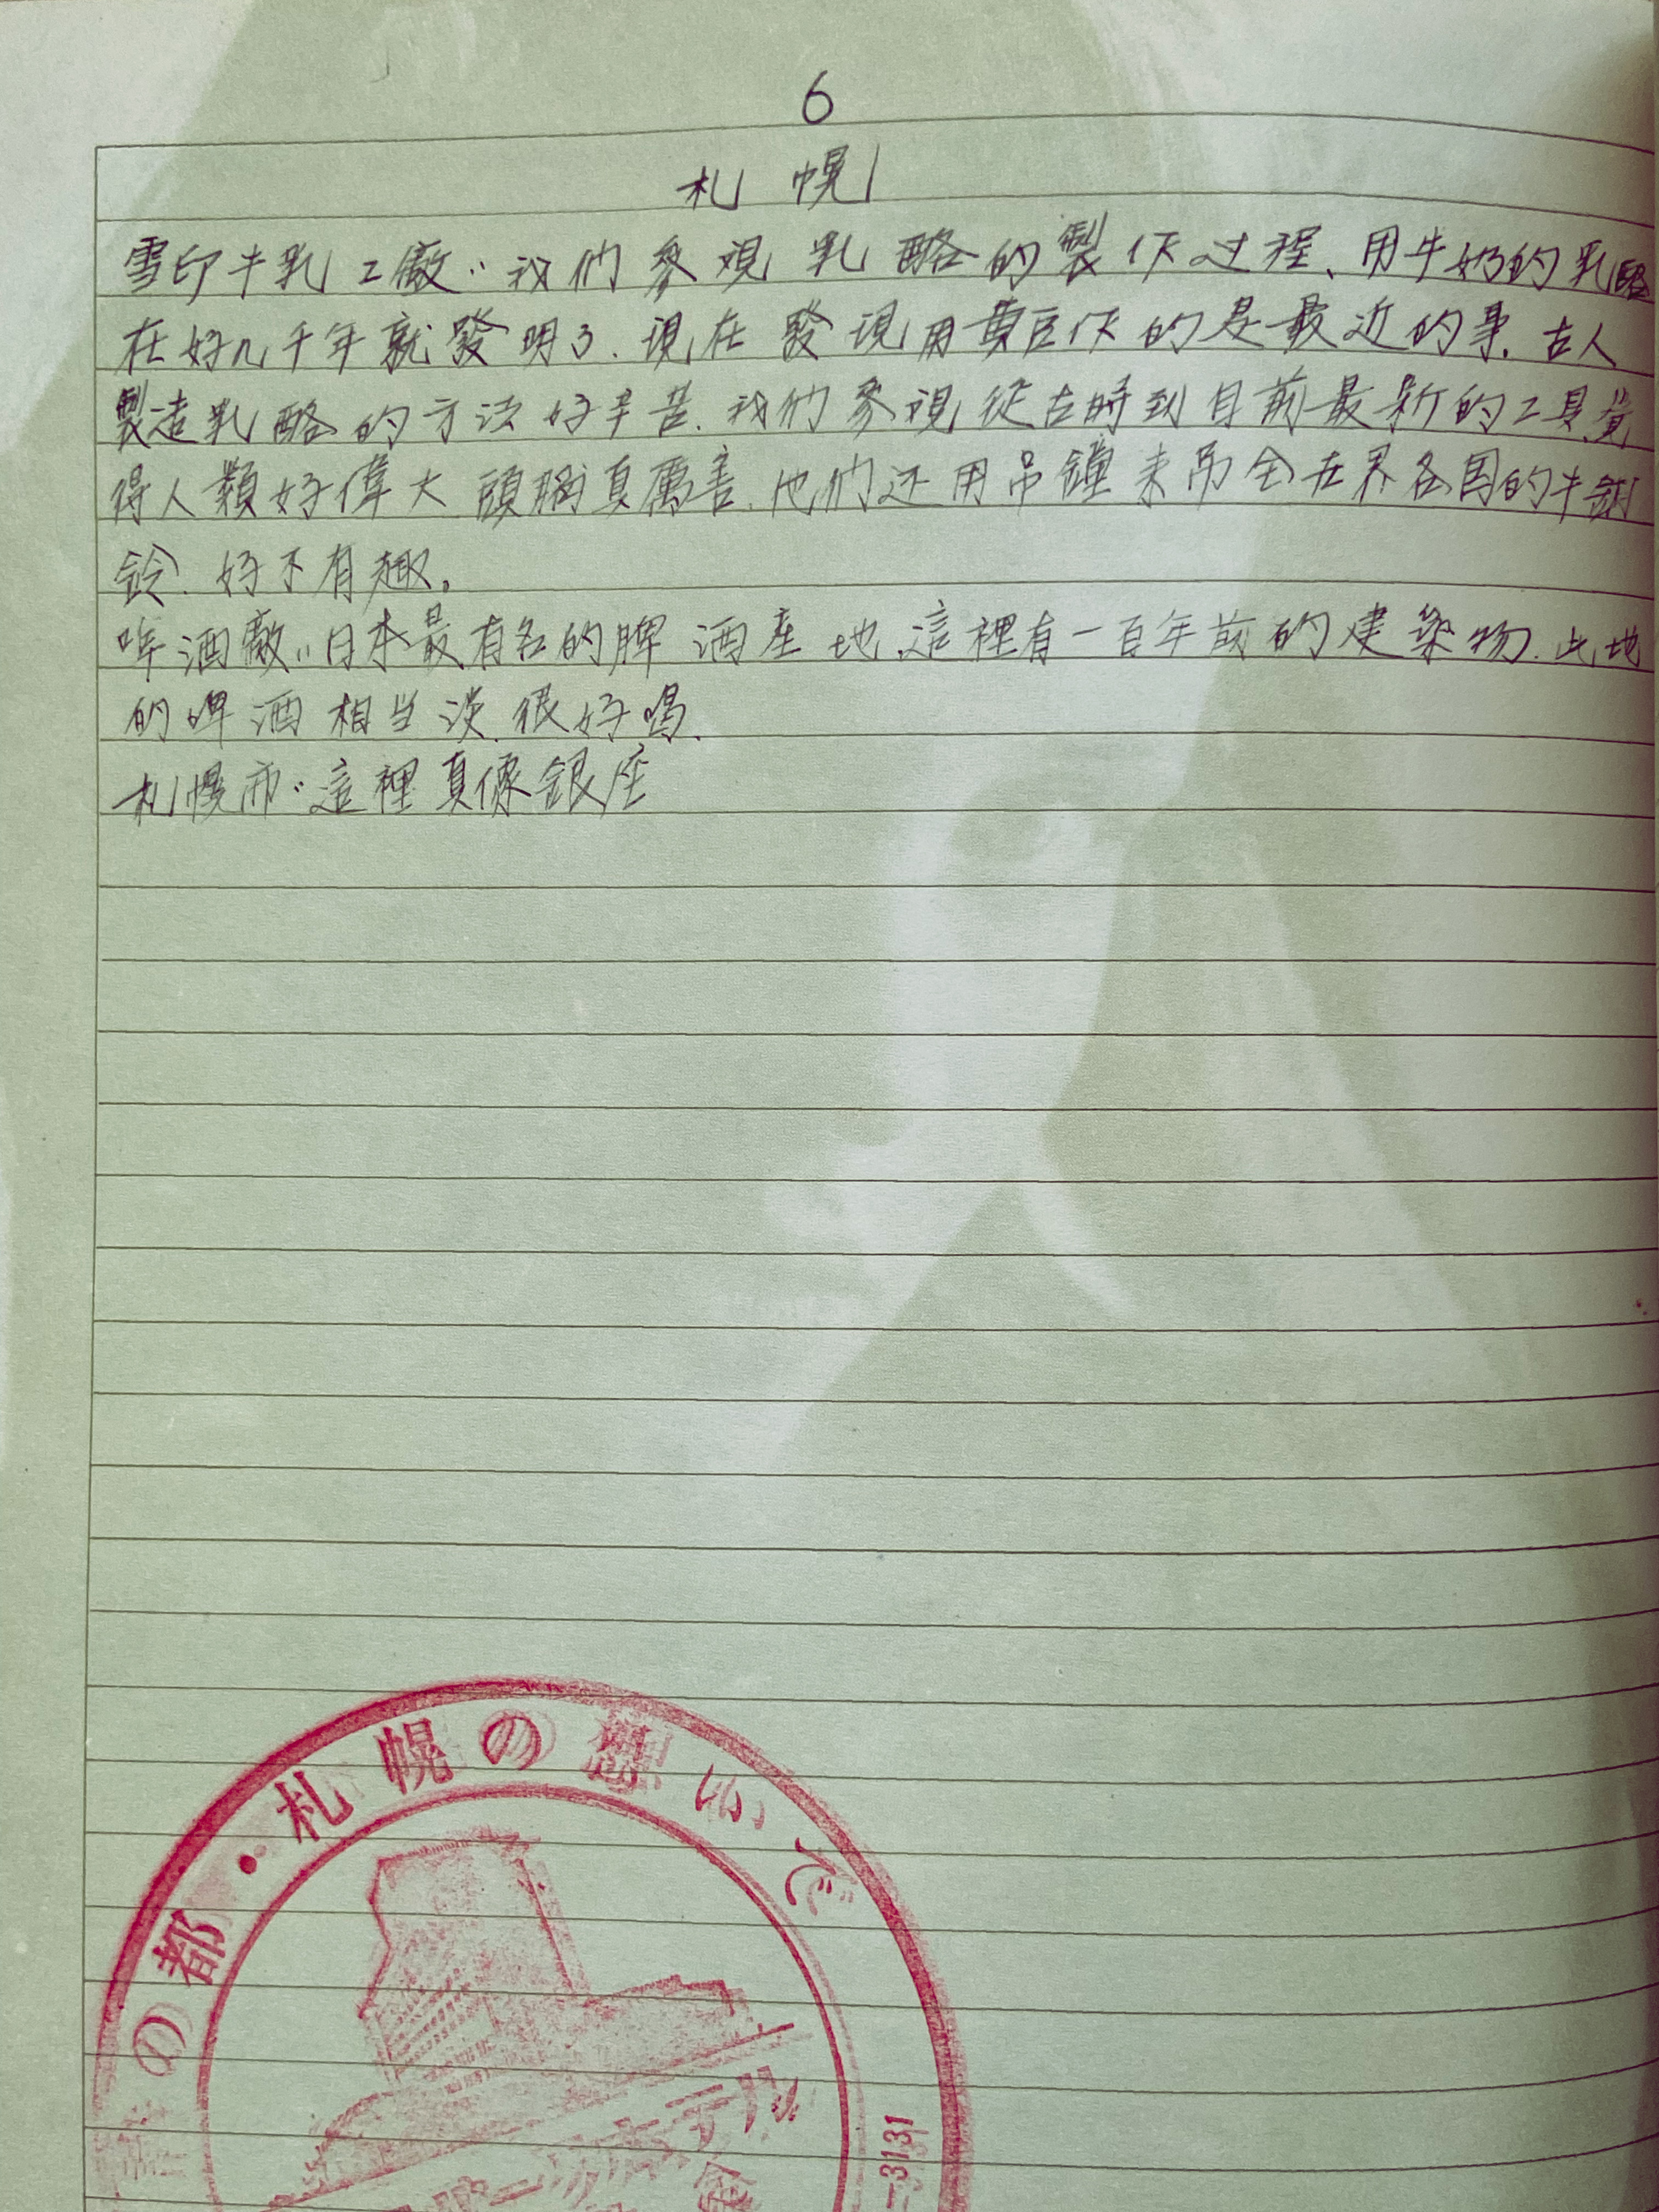 6
札幌
雪印牛乳工廠:我們參觀乳酪的製作过程、用牛奶的乳酪
在好几千年就發明了.現在發現用黄豆作的是最近的事.古人
製造乳酪的方法好辛苦.我們參觀從古時到目前最新的工具,覺
得人類好偉大 頭腦真厲害.他们还用吊鐘来吊全世界各国的牛
鈴.好不有趣。
啤酒廠:日本最有名的脾酒産地.這裡有一百年前的建築物.此地
的啤酒相当淡.很好喝.
札幌市:這裡真像銀座
の都・札幌の想い
-3131